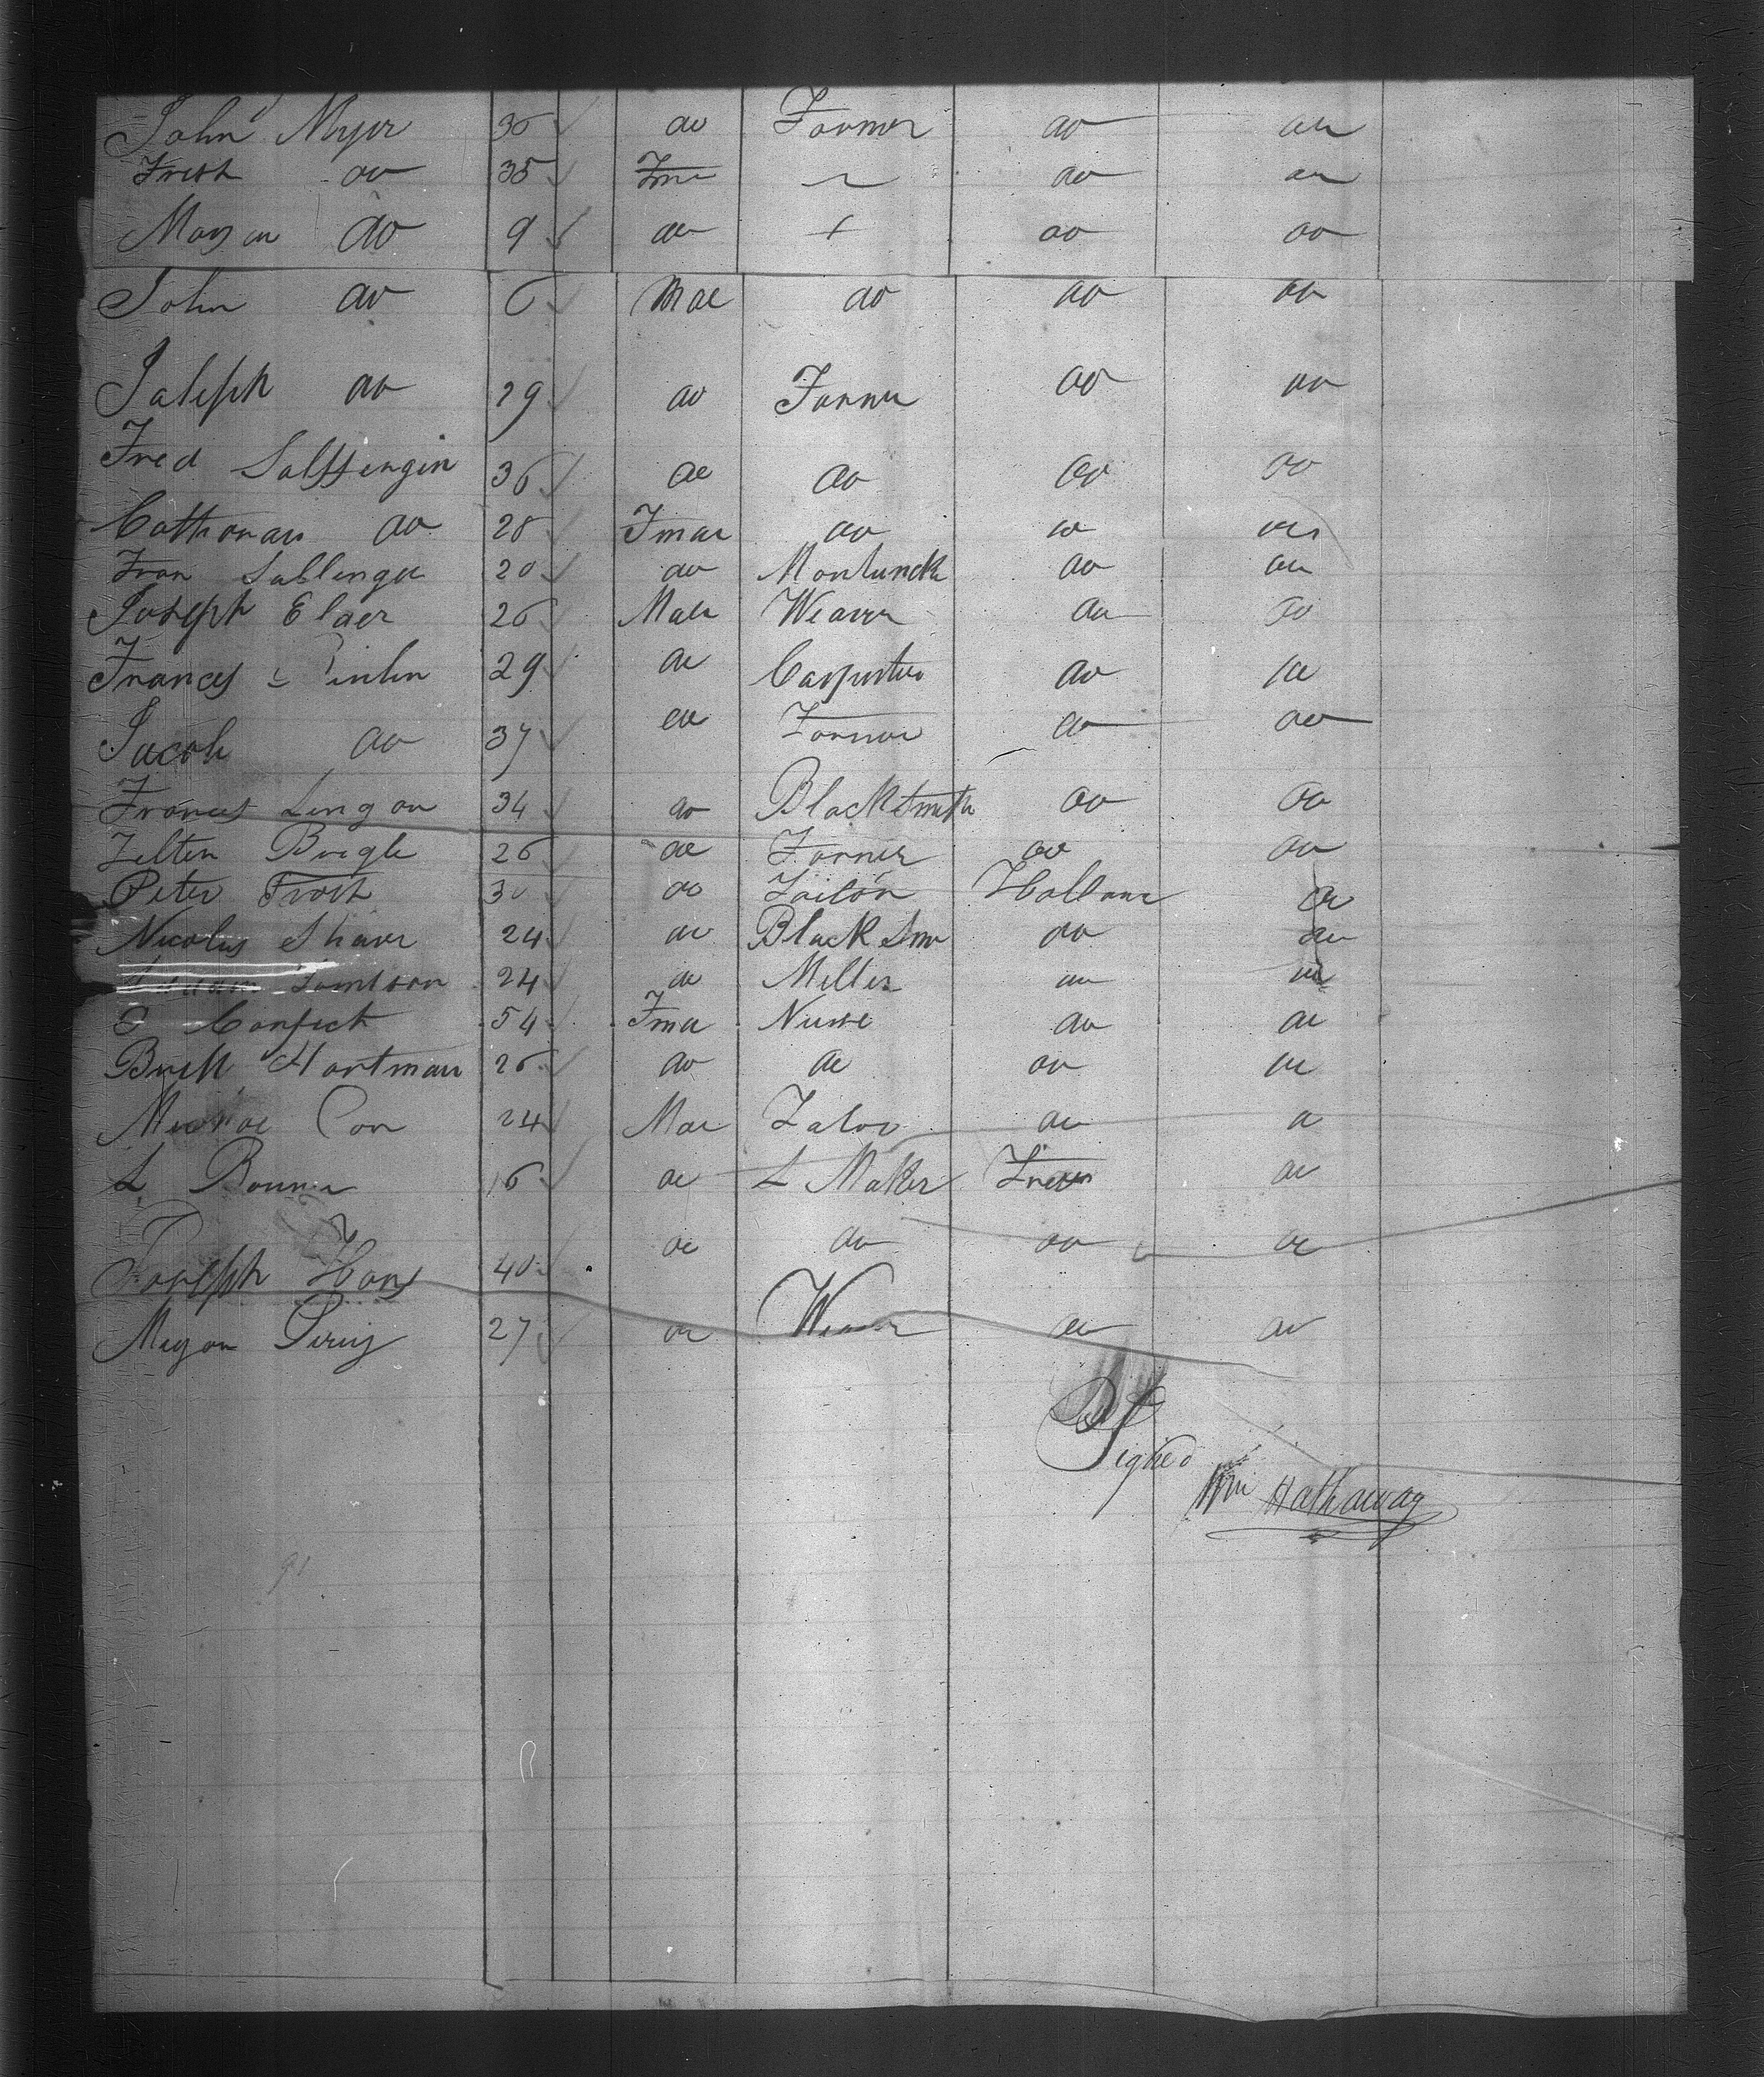 John Myer 36 do Farmer do do
Fresh do 35 Fme do do
Mary an do 9 do + do do
John do 6 Mae do do do
Joseph do 29 do Farmer do do
Fred Salffengin 36 do do do do
Catharan do 28 Fmae do do do
Fran Sablinga 20 do do do
Joseph Elaer 26 Male Weaver do do
Frances 29 do Carpenter do do
Jacob do 37 do Farmer do do
Frances Lingan 34 do Blacksmith do do
Felten Bugle 26 do Farmer do do
Peter Frosh 30 do Tailor Holland do
Nicolus Shaver 24 do Black Sm do do
Tomtson 24 do Miller do do
Confect 54 Fma Nurse do do
Hartman 26 do do do do
Con 24 Mae Labor do do
L 16 do L Maker do
Joseph Hans 40 do do do do
27 do Weaver do do
Signed
Wm Hathaway
91